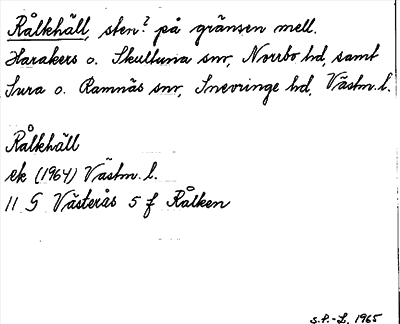 Rålkhäll, sten? på gränsen mell.
Harakers o. Skultuna snr, Norrbo hd, samt
Sura o. Ramnäs snr, Snevringe hd, Västm. l.
Rålkhäll
ek (1964) Västm. l.
11 G Västerås 5 f Rålken
S.P.-L. 1965